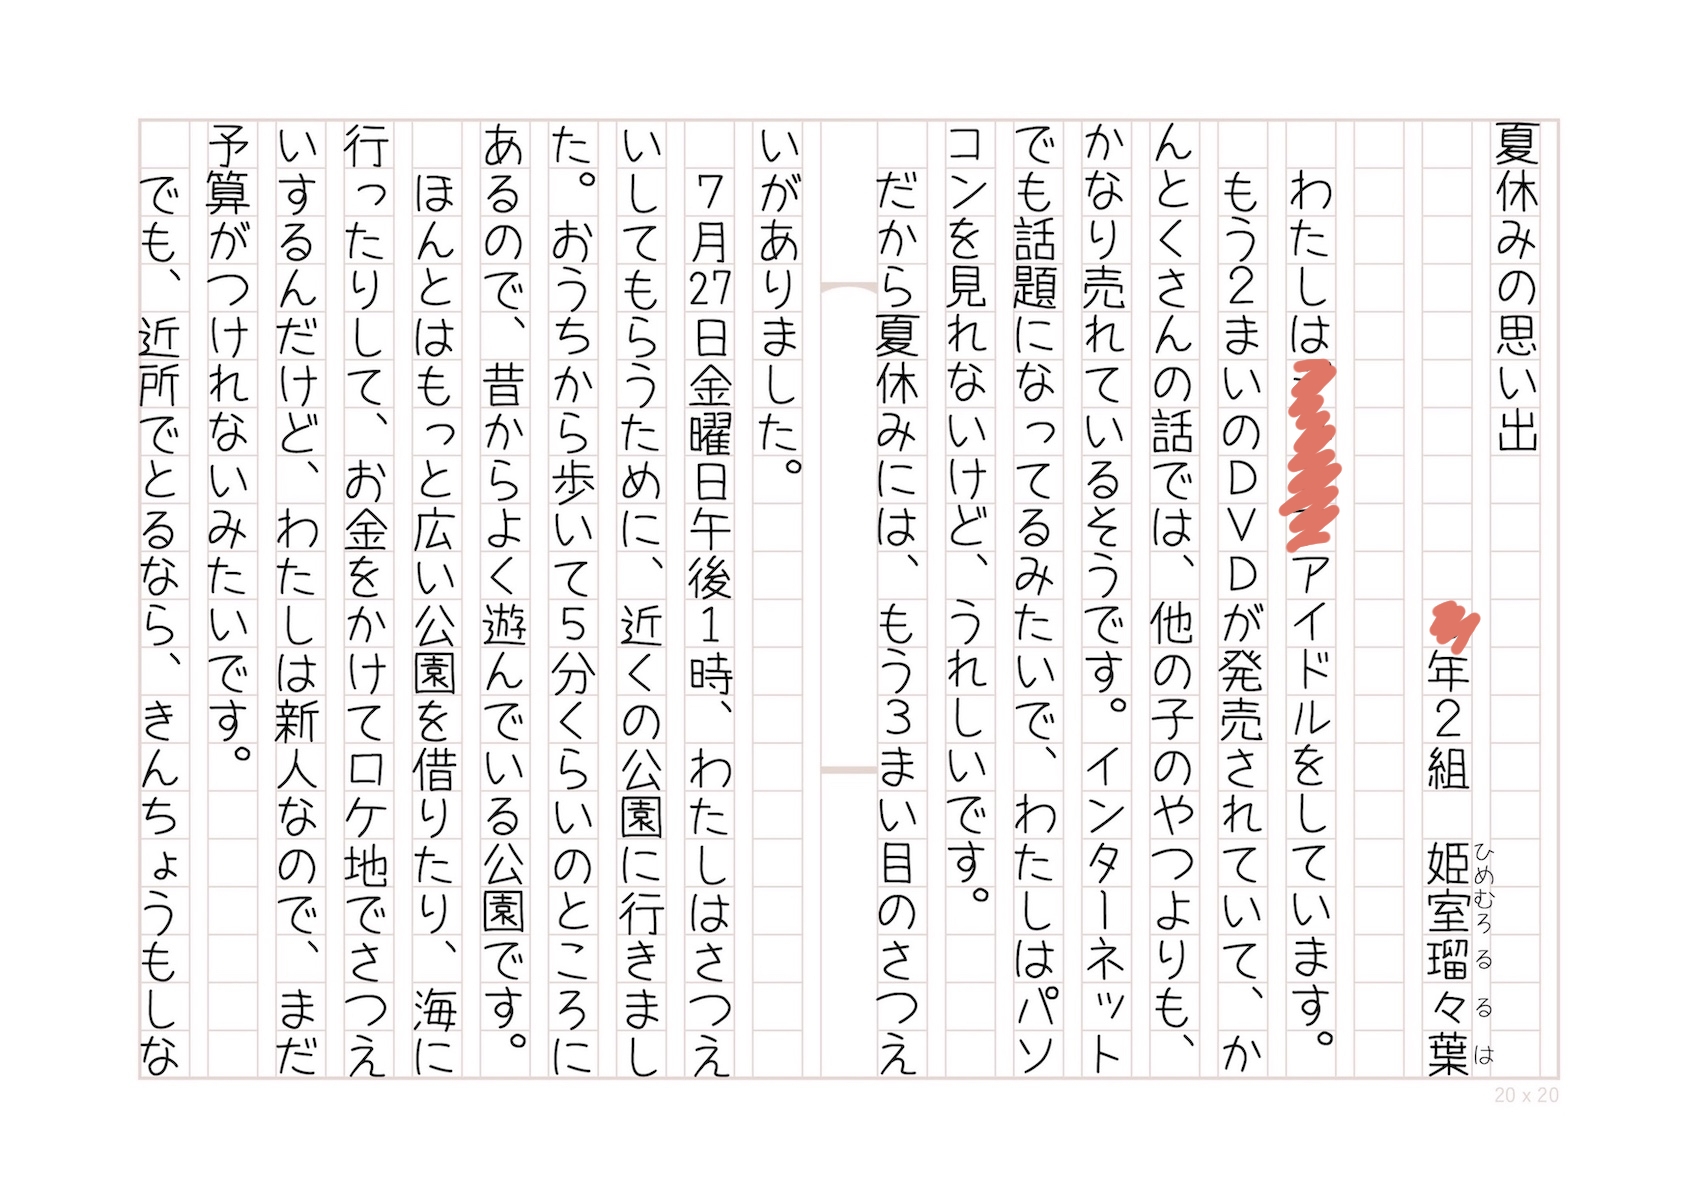 夏休みの思い出
年2組　姫室瑠々葉
ひめむろるるは
わたしは
アイドルをしています。
もう2まいのDVDが発売されていて、か
んとくさんの話では、他の子のやつよりも、
かなり売れているそうです。インターネット
でも話題になってるみたいで、わたしはパソ
コンを見れないけど、うれしいです。
だから夏休みには、もう3まい目のさつえ
いがありました。
7月27日金曜日午後1時、わたしはさつえ
いしてもらうために、近くの公園に行きまし
た。おうちから歩いて5分くらいのところに
あるので、昔からよく遊んでいる公園です。
ほんとはもっと広い公園を借りたり、海に
行ったりして、お金をかけてロケ地でさつえ
いするんだけど、わたしは新人なので、まだ
予算がつけれないみたいです。
でも、近所でとるなら、きんちょうもしな
20 x 20